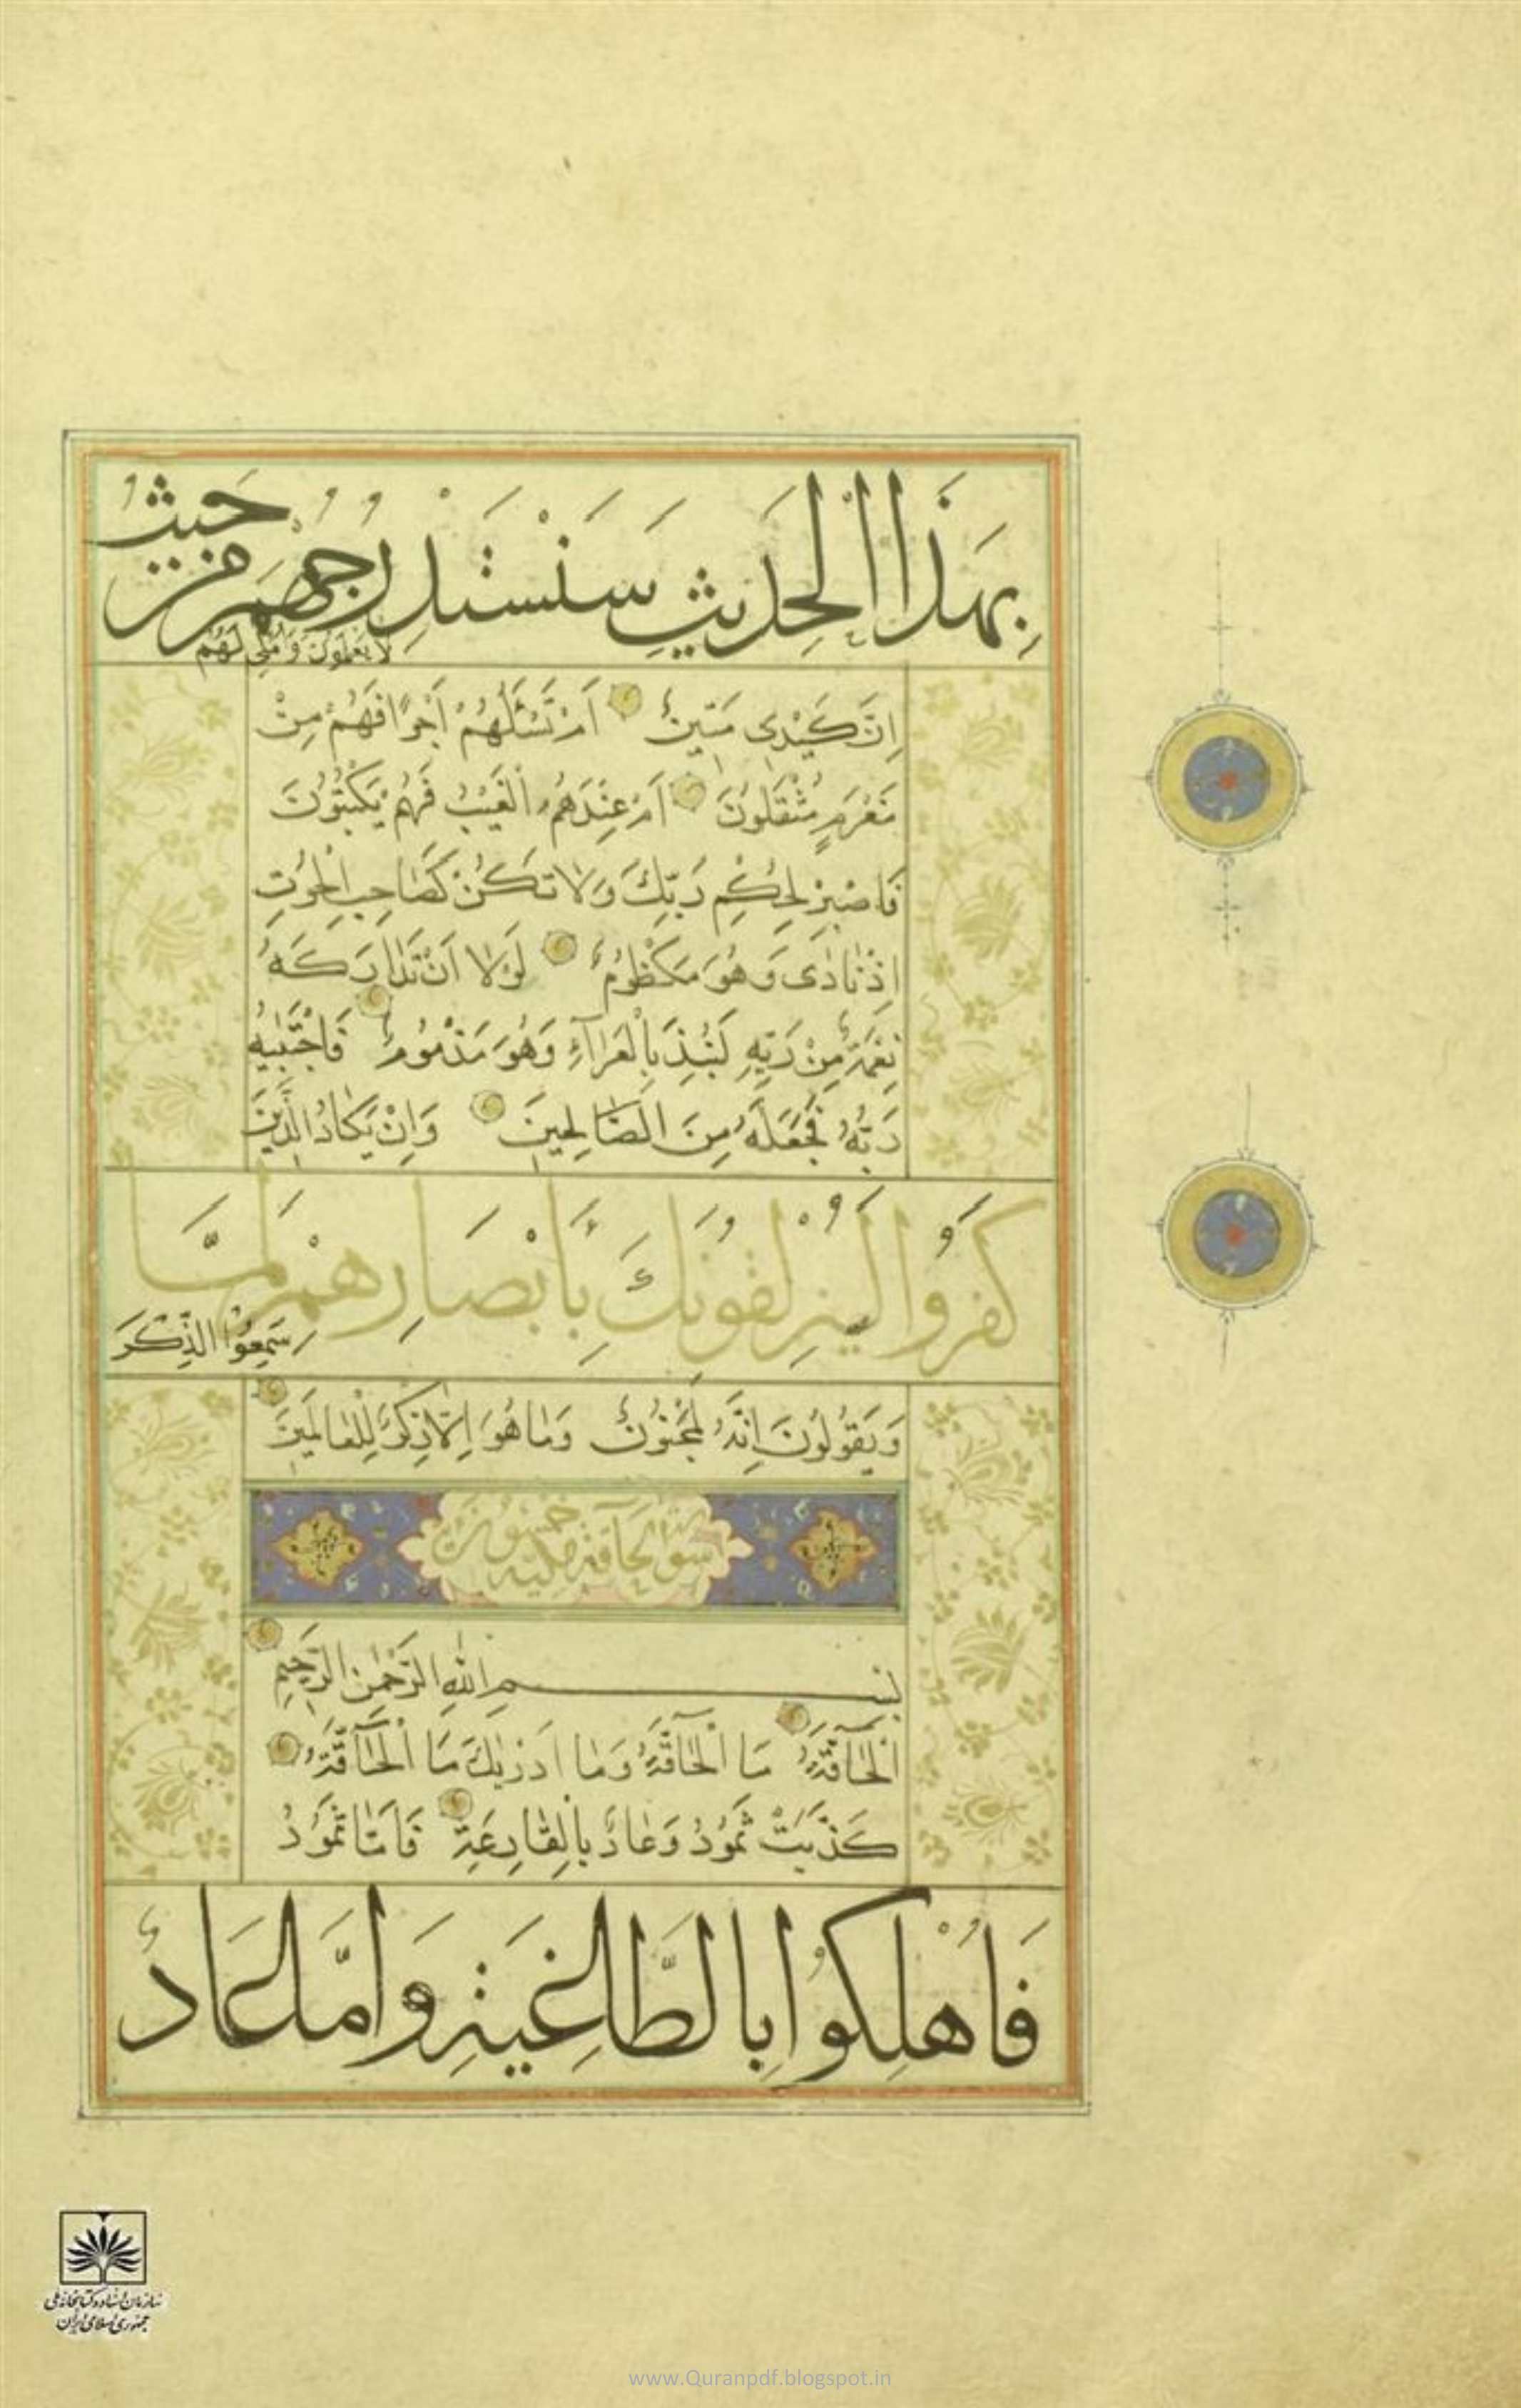 بِهَذَا الْحَدِيثِ سَنَسْتَدْرِجُهُمْ مِنْ حَيْثُ
لَا يَعْلَمُونَ وَأُمْلِي لَهُمْ
اِنَّ كَيْدِى مَتِينٌ اَمْ تَسْئَلُهُمْ اَجْرًا فَهُمْ مِنْ
مَغْرَمٍ مُثْقَلُونَ اَمْ عِنْدَهُمُ الْغَيْبُ فَهُمْ يَكْتُبُونَ
فَاصْبِرْ لِحُكْمِ رَبِّكَ وَلَا تَكُنْ كَصَاحِبِ الْحُوتِ
اِذْ نَادَى وَهُوَ مَكْظُومٌ لَوْلَا اَنْ تَدَارَكَهُ
نِعْمَةٌ مِنْ رَبِّهِ لَنُبِذَ بِالْعَرَآءِ وَهُوَ مَذْمُومٌ فَاجْتَبٰيهُ
رَبُّهُ فَجَعَلَهُ مِنَ الصَّالِحِينَ وَاِنْ يَكَادُ الَّذِينَ
كَفَرُوا لَيُزْلِقُونَكَ بِأَبْصَارِهِمْ لَمَّا
سَمِعُوا الذِّكْرَ
وَيَقُولُونَ اِنَّهُ لَمَجْنُونٌ وَمَا هُوَ اِلَّا ذِكْرٌ لِلْعَالَمِينَ
سورة الحاقة مكية
بِسْمِ اللهِ الرَّحْمٰنِ الرَّحِيمِ
اَلْحَآقَّةُ مَا الْحَآقَّةُ وَمَا اَدْرٰيكَ مَا الْحَآقَّةُ
كَذَّبَتْ ثَمُودُ وَعَادٌ بِالْقَارِعَةِ فَاَمَّا ثَمُودُ
فَاُهْلِكُوا بِالطَّاغِيَةِ وَاَمَّا عَادٌ
سازمان اسناد و کتابخانه ملی
جمهوری اسلامی ایران
www.Quranpdf.blogspot.in